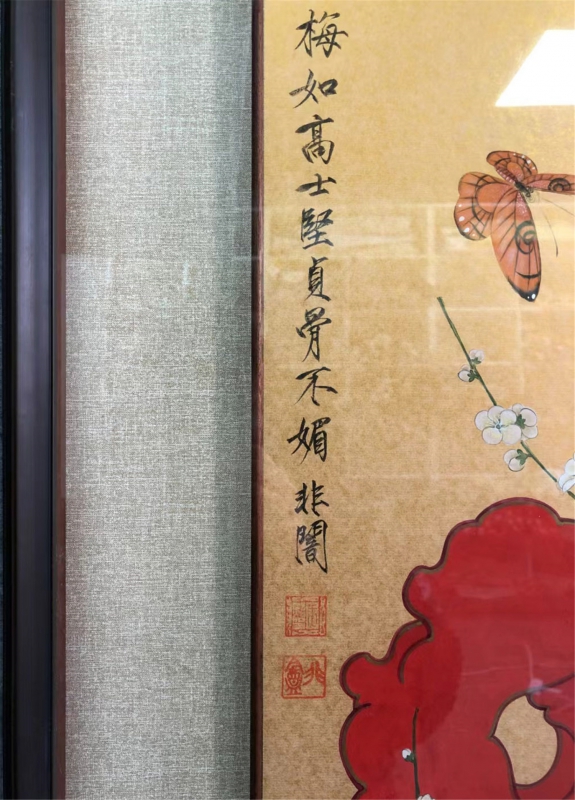 梅如高士堅貞骨不媚非闇